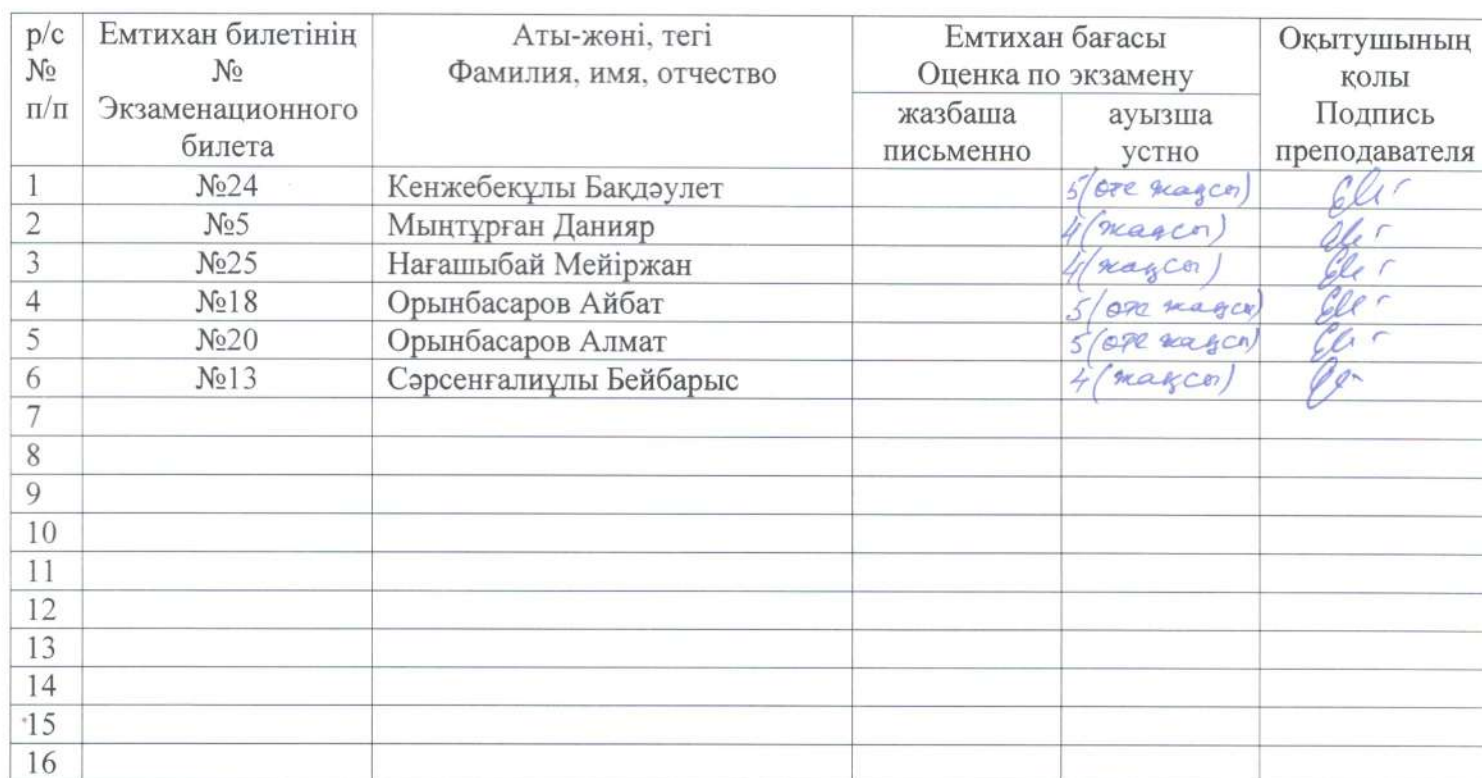 р/с № п/п Емтихан билетінің № Экзаменационного билета Аты-жөні, тегі Фамилия, имя, отчество Емтихан бағасы Оценка по экзамену Оқытушының қолы Подпись преподавателя
жазбаша письменно ауызша устно
1 №24 Кенжебекұлы Бақдәулет 5(өте жақсы)
2 №5 Мыңтұрған Данияр 4(жақсы)
3 №25 Нағашыбай Мейіржан 4(жақсы)
4 №18 Орынбасаров Айбат 5(өте жақсы)
5 №20 Орынбасаров Алмат 5(өте жақсы)
6 №13 Сәрсенғалиұлы Бейбарыс 4(жақсы)
7
8
9
10
11
12
13
14
15
16